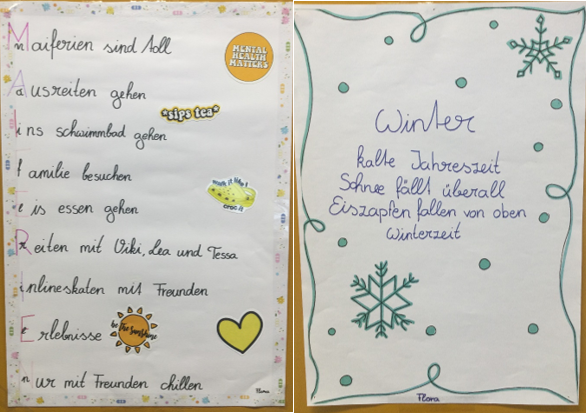 Maiferien sind toll
MENTAL
HEALTH
MATTERS
Ausreiten gehen
*sips tea*
Ins schwimmbad gehen
Familie besuchen
Eis essen gehen
Reiten mit Viki, Lea und Tessa
Inlineskaten mit Freunden
Erlebnisse
be the sunshine
Nur mit Freunden chillen
Flora
Winter
kalte Jahreszeit
Schnee fällt überall
Eiszapfen fallen von oben
Winterzeit
Flora